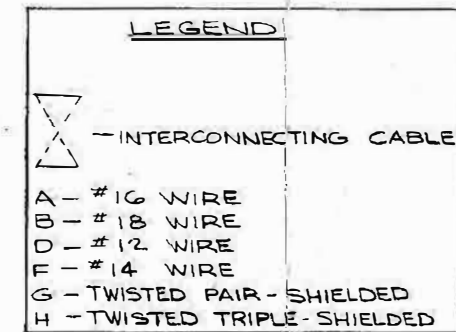 LEGEND
— INTERCONNECTING CABLE
A — #16 WIRE
B — #18 WIRE
D — #12 WIRE
F — #14 WIRE
G — TWISTED PAIR - SHIELDED
H — TWISTED TRIPLE - SHIELDED